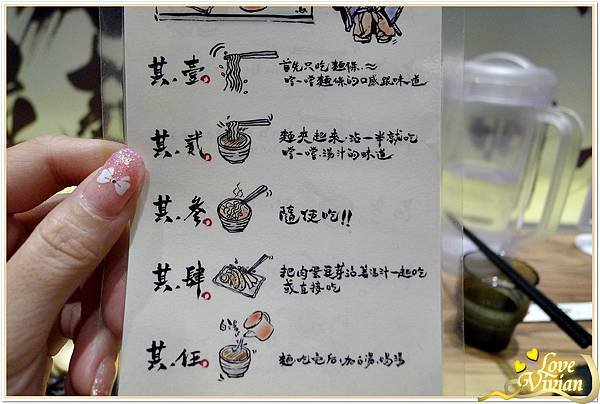 其.壹。
首先只吃麵條.~
嚐一嚐麵條的口感跟味道
其.貳。
麵夾起來.沾一半就吃
嚐一嚐.湯汁的味道
其.參。
隨便吃!!
其.肆。
把肉蛋豆芽沾著湯汁一起吃
或直接吃
白湯
其.伍。
麵吃完后.加白湯.喝湯
Love
Vivian